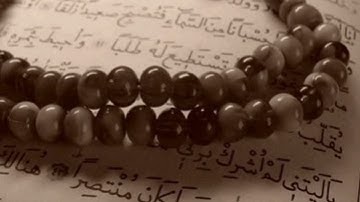 حُسْبَانًا مِنَ السَّمَاءِ فَتُصْبِحَ صَعِيدًا زَلَقًا
تَسْتَطِيعَ لَهُ طَلَبًا وَأُحِيطَ بِثَمَرِهِ
يُقَلِّبُ
يَالَيْتَنِي لَمْ أُشْرِكْ بِرَبِّي
كَانَ مُنْتَصِرًا هُنَالِكَ